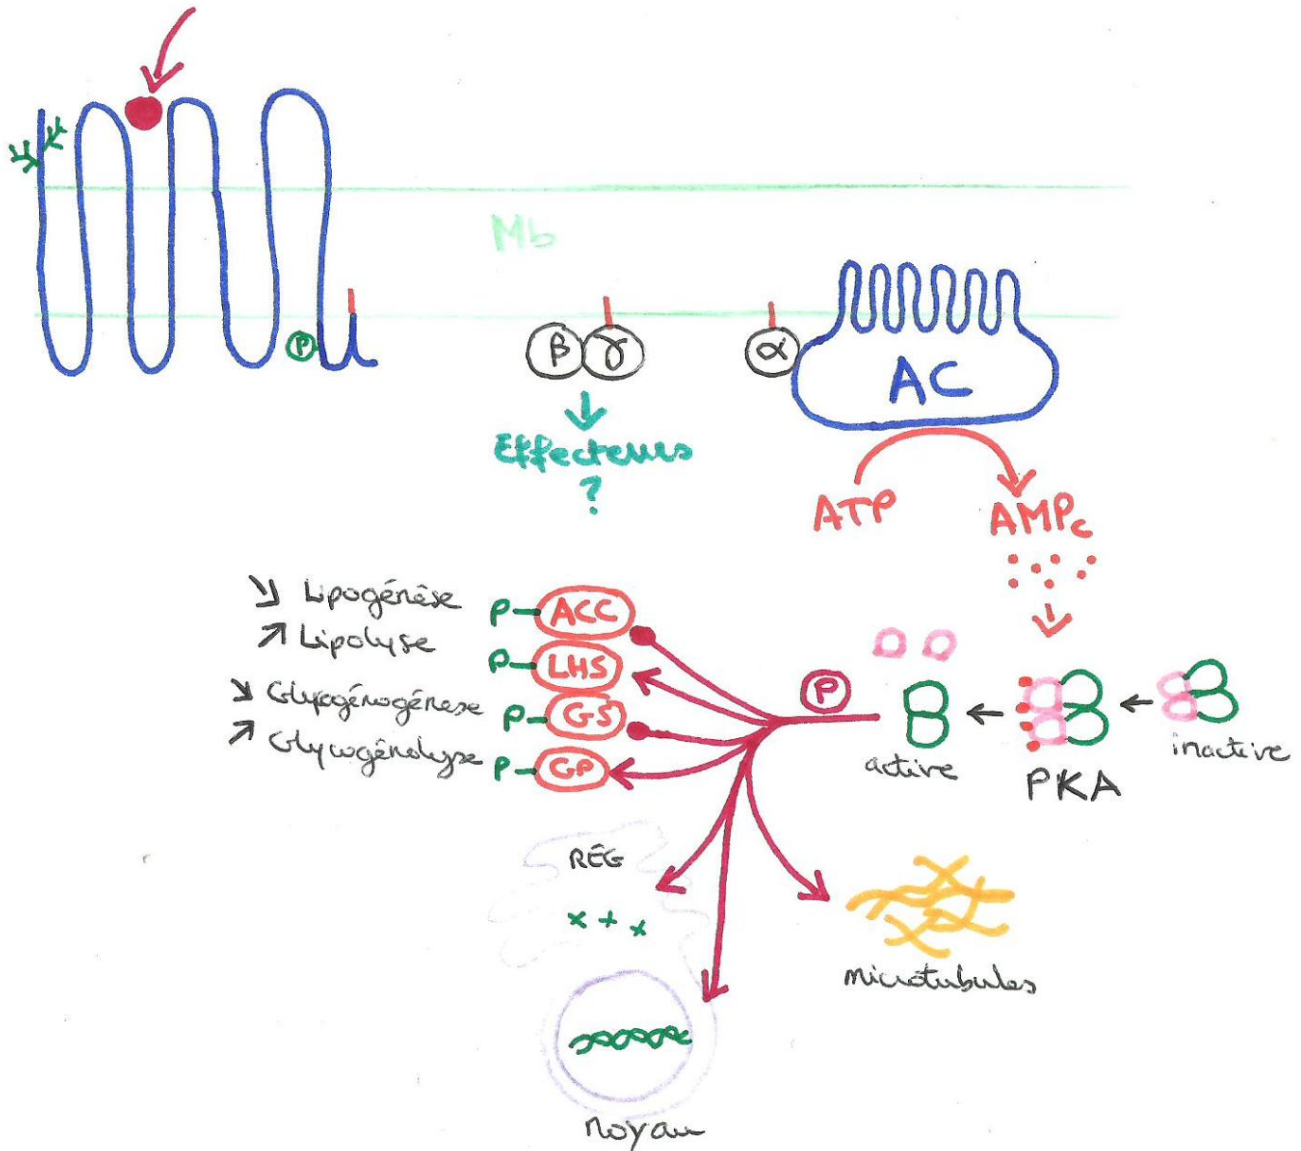 Mb
P
β γ
α
AC
Effecteurs
?
ATP
AMPc
↘ Lipogénèse
P- ACC
↗ Lipolyse
P- LHS
↘ Glycogénogénèse
P- GS
↗ Glycogénolyse
P- GP
P
active
PKA
inactive
REG
x + x
microtubules
noyau